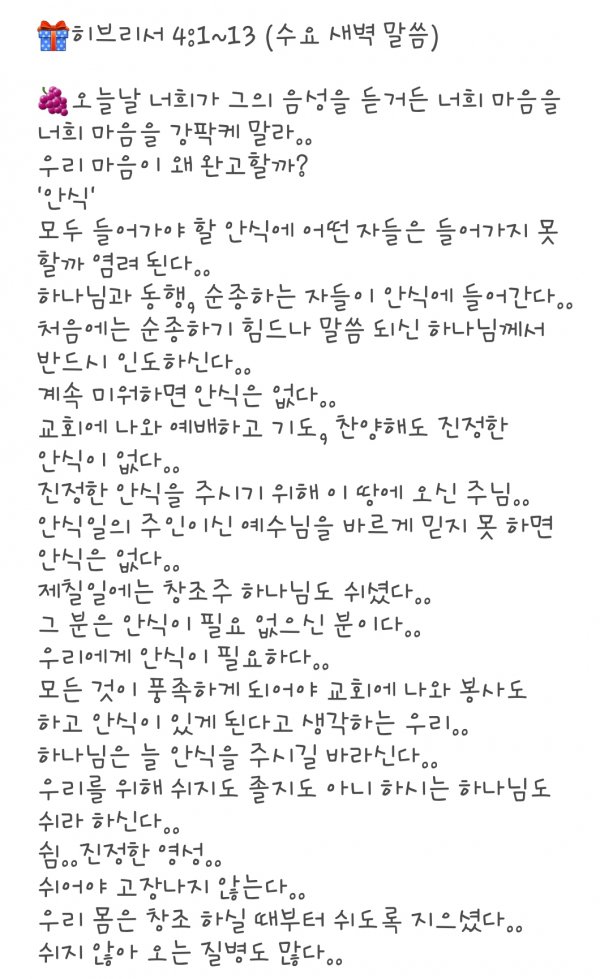 🎁히브리서 4:1~13 (수요 새벽 말씀)
🍇오늘날 너희가 그의 음성을 듣거든 너희 마음을
너희 마음을 강팍케 말라..
우리 마음이 왜 완고할까?
'안식'
모두 들어가야 할 안식에 어떤 자들은 들어가지 못
할까 염려 된다..
하나님과 동행, 순종하는 자들이 안식에 들어간다..
처음에는 순종하기 힘드나 말씀 되신 하나님께서
반드시 인도하신다..
계속 미워하면 안식은 없다..
교회에 나와 예배하고 기도, 찬양해도 진정한
안식이 없다..
진정한 안식을 주시기 위해 이 땅에 오신 주님..
안식일의 주인이신 예수님을 바르게 믿지 못 하면
안식은 없다..
제칠일에는 창조주 하나님도 쉬셨다..
그 분은 안식이 필요 없으신 분이다..
우리에게 안식이 필요하다..
모든 것이 풍족하게 되어야 교회에 나와 봉사도
하고 안식이 있게 된다고 생각하는 우리..
하나님은 늘 안식을 주시길 바라신다..
우리를 위해 쉬지도 졸지도 아니 하시는 하나님도
쉬라 하신다..
쉼..진정한 영성..
쉬어야 고장나지 않는다..
우리 몸은 창조 하실 때부터 쉬도록 지으셨다..
쉬지 않아 오는 질병도 많다..